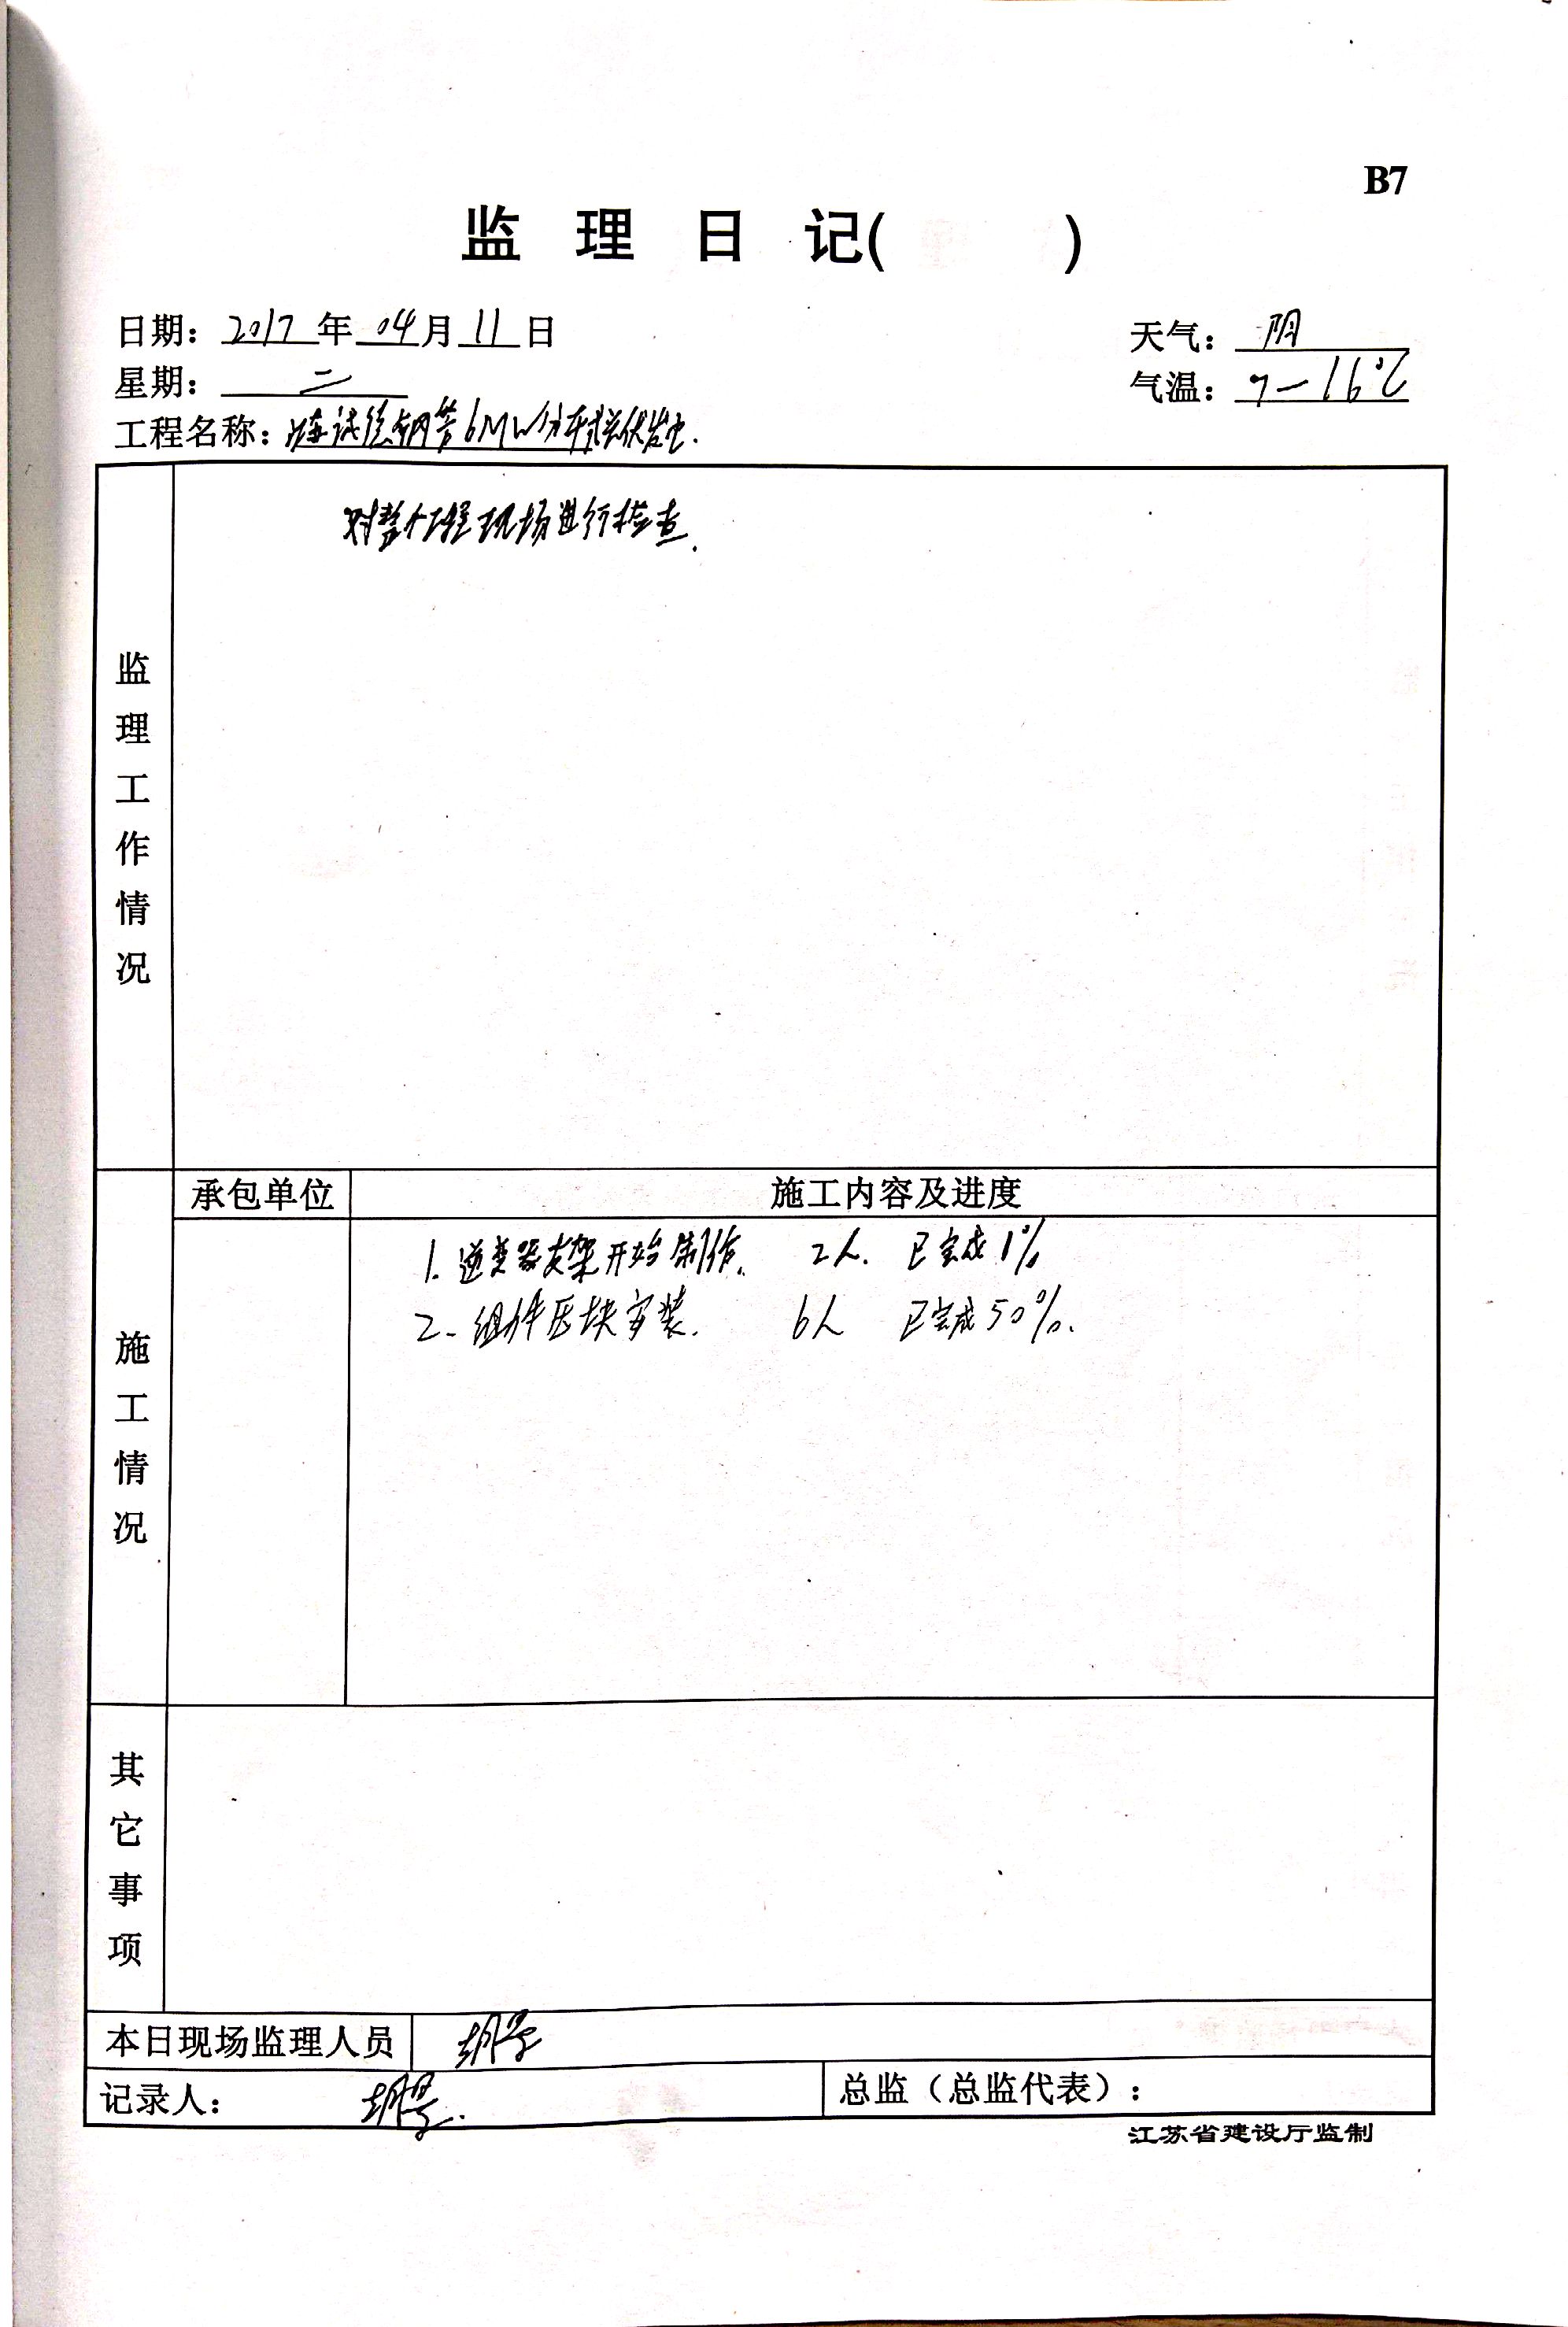 B7
监 理 日 记( )
日期: 2017 年 04 月 11 日
天气: 阴
星期: 二
气温: 7-16℃
工程名称: 诚德钢管6MW分布式光伏发电.
监理工作情况
对整个工程现场进行检查.
施工情况
承包单位 施工内容及进度
1. 逆变器支架开始制作. 2人. 已完成1%
2. 组件压块安装. 6人 已完成50%.
其它事项
本日现场监理人员
记录人:
总监(总监代表):
江苏省建设厅监制